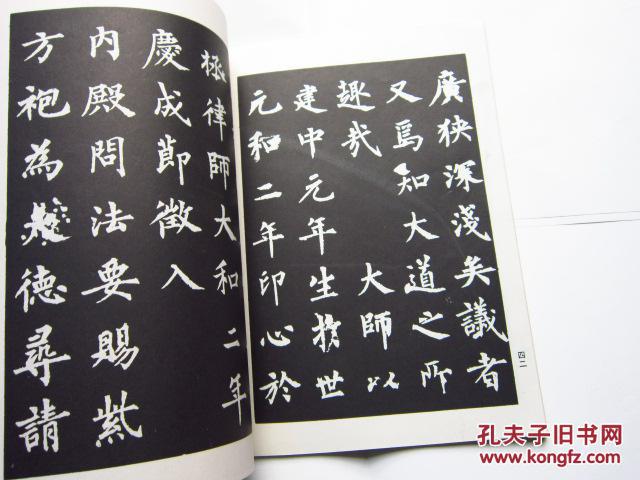 廣狹深淺矣議者
又焉知大道之所
趣哉 大師以
建中元年生於世
元和二年印心於
四二
拯律師大和二年
慶成節徵入
内殿問法要賜紫
方袍為大德尋請
孔夫子旧书网
www.kongfz.com